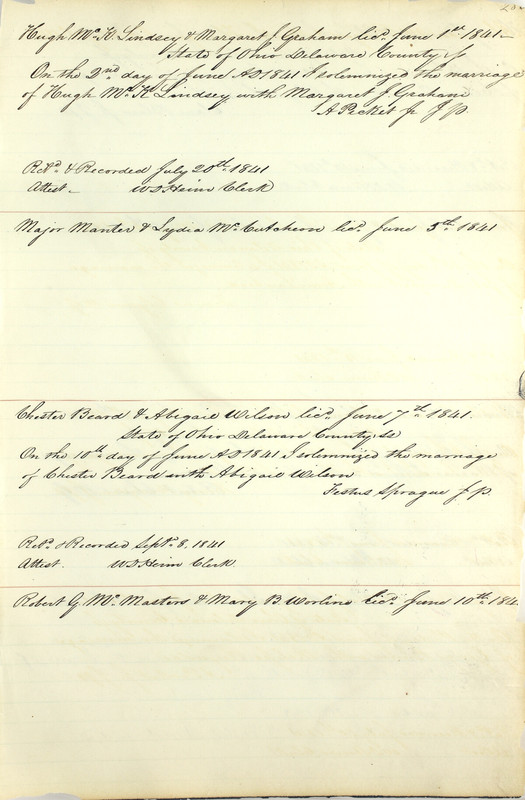 Hugh Mc. K. Lindsey & Margaret J. Graham licd. June 1st 1841—
State of Ohio Delaware County Ss
On the 2nd day of June AD 1841 I solemnized the marriage
of Hugh Mc. K Lindsey with Margaret J. Graham
A Picket Jr J P.
Retd. & Recorded July 20th 1841
Attest — W D Heim Clerk
Major Manter & Lydia Mc. Cutcheon licd. June 5th 1841
Chester Beard & Abigail Wilson licd. June 7th 1841.
State of Ohio Delaware County Ss
On the 10th day of June AD 1841 I solemnized the marriage
of Chester Beard with Abigail Wilson
Festus Sprague J P.
Retd. & Recorded Sept. 8. 1841
Attest. W D Heim Clerk
Robert G. Mc. Masters & Mary B Worline licd. June 10th 184